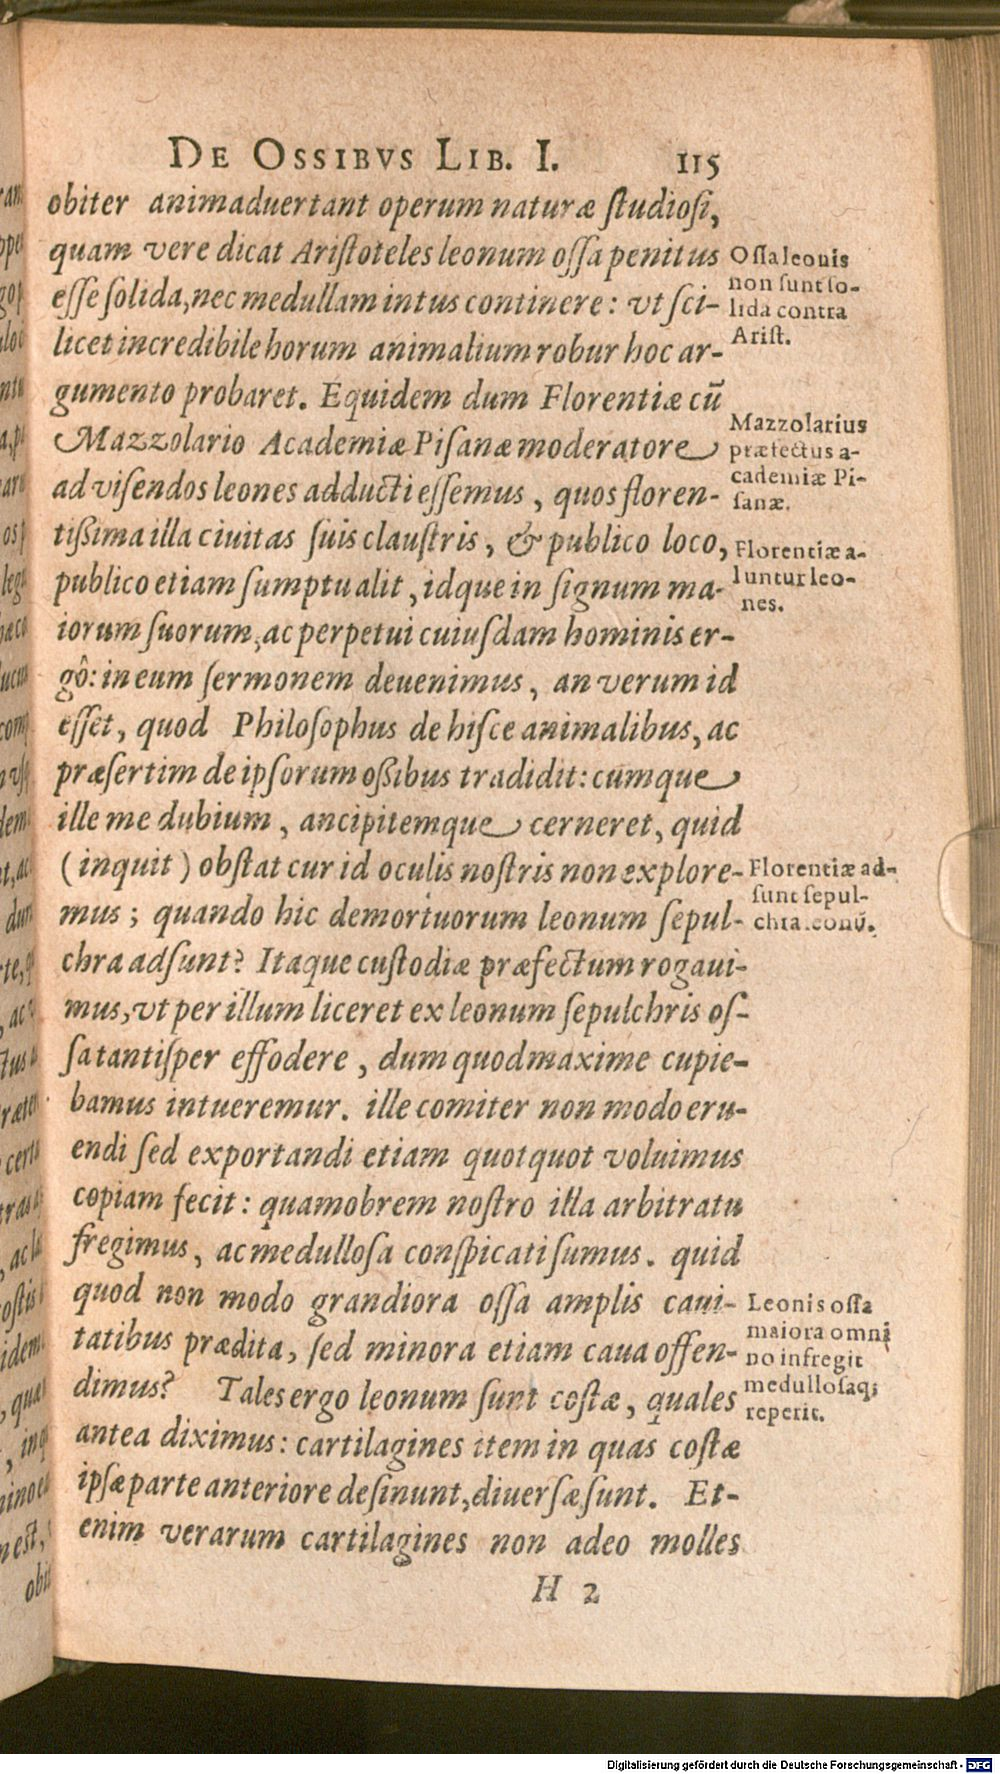 DE OSSIBVS LIB. I. 115
obiter animaduertant operum naturæ ſtudioſi,
quam vere dicat Ariſtoteles leonum oſſa penitus
eſſe ſolida, nec medullam intus continere: vt ſci-
licet incredibile horum animalium robur hoc ar-
gumento probaret. Equidem dum Florentiæ cū
Mazzolario Academiæ Piſanæ moderatore
ad viſendos leones adducti eſſemus, quos floren-
tißima illa ciuitas ſuis clauſtris, & publico loco,
publico etiam ſumptu alit, idque in ſignum ma-
iorum ſuorum, ac perpetui cuiuſdam hominis er-
gô: in eum ſermonem deuenimus, an verum id
eſſet, quod Philoſophus de hiſce animalibus, ac
præſertim de ipſorum oßibus tradidit: cumque
ille me dubium, ancipitemque cerneret, quid
(inquit) obſtat cur id oculis noſtris non explore-
mus; quando hic demortuorum leonum ſepul-
chra adſunt? Itaque cuſtodiæ præfectum rogaui-
mus, vt per illum liceret ex leonum ſepulchris oſ-
ſa tantiſper effodere, dum quod maxime cupie-
bamus intueremur. ille comiter non modo eru-
endi ſed exportandi etiam quotquot voluimus
copiam fecit: quamobrem noſtro illa arbitratu
fregimus, ac medulloſa conſpicati ſumus. quid
quod non modo grandiora oſſa amplis caui-
tatibus prædita, ſed minora etiam caua offen-
dimus? Tales ergo leonum ſunt coſtæ, quales
antea diximus: cartilagines item in quas coſtæ
ipſæ parte anteriore deſinunt, diuerſæ ſunt. Et-
enim verarum cartilagines non adeo molles
H 2
Oſſa leonis
non ſunt ſo-
lida contra
Ariſt.
Mazzolarius
præfectus a-
cademiæ Pi-
ſanæ.
Florentiæ a-
luntur leo-
nes.
Florentiæ ad-
ſunt ſepul-
chra leonū.
Leonis oſſa
maiora omni
no infregit
medulloſaq;
reperit.
Digitalisierung gefördert durch die Deutsche Forschungsgemeinschaft - DFG